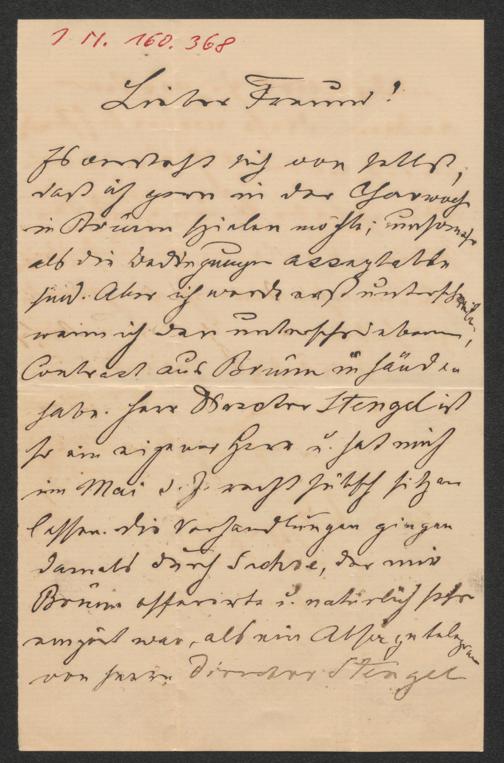 J. N. 160.368
Lieber Freund!
Es versteht sich von selbst,
daß ich gern in der Charwoche
in Brünn spielen möchte; umsomehr
als die Bedingungen acceptabel
sind. Aber ich werde erst unterschreiben,
wenn ich den unterschriebenen
Contract aus Brünn in Händen
habe. Herr Director Stengel ist
so ein eigener Herr u. hat mich
im Mai d. J. recht hübsch sitzen
lassen. Die Verhandlungen gingen
damals durch Sachse, der mir
Brünn offerirte u. natürlich sehr
empört war, als ein Absagetelegramm
von Herrn Director Stengel